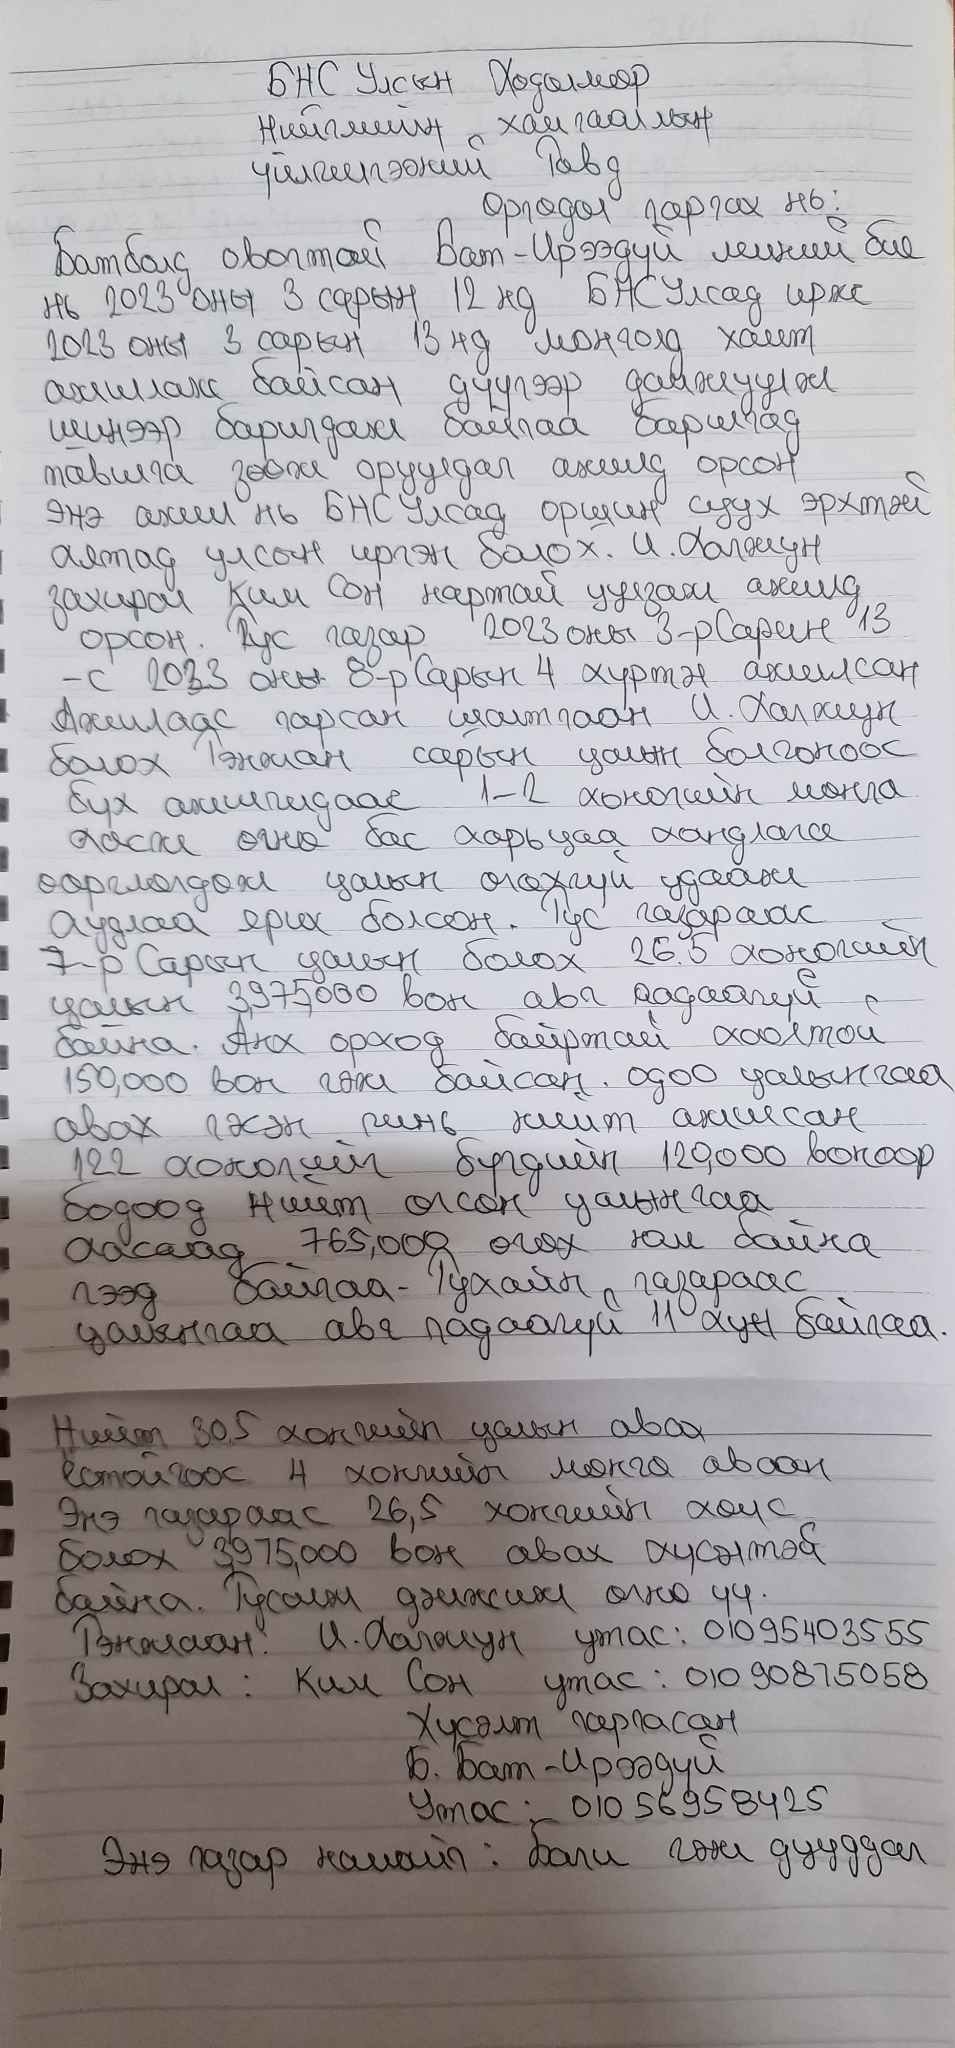 БНС Улсын Ходолмор
Нийгмийн хамгааллын
үйлчилгээний Товд
Оргодол гаргах нь:
Батболд овогтой Бат-Ирээдүй миний бие
нь 2023 оны 3 сарын 12 нд БНСУлсад ирже
2023 оны 3 сарын 13 нд монголд хамт
ажиллаж байсан дүүгээр дамжуулж
шинээр баригдаж байгаа барилгад
тавилга зөөж оруулдаг ажилд орсон
Энэ ажил нь БНСУлсад оршин суух эрхтэй
Хятад улсын иргэн болох. И.Халжун
захирал Ким Сон нартай уулзаж ажилд
орсон. Тус газар 2023 оны 3-р Сарын 13
-с 2023 оны 8-р Сарын 4 хүртэл ажилсан
Ажилаас гарсан шалтгаан И.Халжун
болох Тэнжан сарын цалын болгоноос
бүх ажилчидаас 1-2 хоногийн монго
хасже огно бас харьцаа хандлага
оорчлогдож цалын огохгүй удааж
худлаа ярих болсон. Тус газараас
7-р Сарын цалын болох 26.5 хоногийн
цалын 3,975,000 вон авч чадаагүй
байна. Анх ороход байртай хоолтой
150,000 вон гэж байсан. одоо цалынгаа
авах гэсэн чинь нийт ажилсан
122 хоногийг бүгдийн 120,000 воноор
бодоод Нийт огсон цалынгаа
хасаад 765,000 огох юм байна
гээд байгаа- Тухайн газараас
цалынгаа авч чадаагүй 11 хүн байгаа.
Нийт 30.5 хонгийн цалын авах
ёстойгоос 4 хонгийн монго авсан
Энэ газараас 26,5 хонгийн холс
болох 3,975,000 вон авах хүсэлтэй
байна. Тусалж дэмжиж огно уу.
Тэнжаан: И.Халжун утас: 01095403555
Захирал: Ким Сон утас: 01090875058
Хүсэлт гаргасан
Б. Бат-Ирээдүй
Утас: 01056958425
Энэ газар намайг: Баги гэж дууддаг